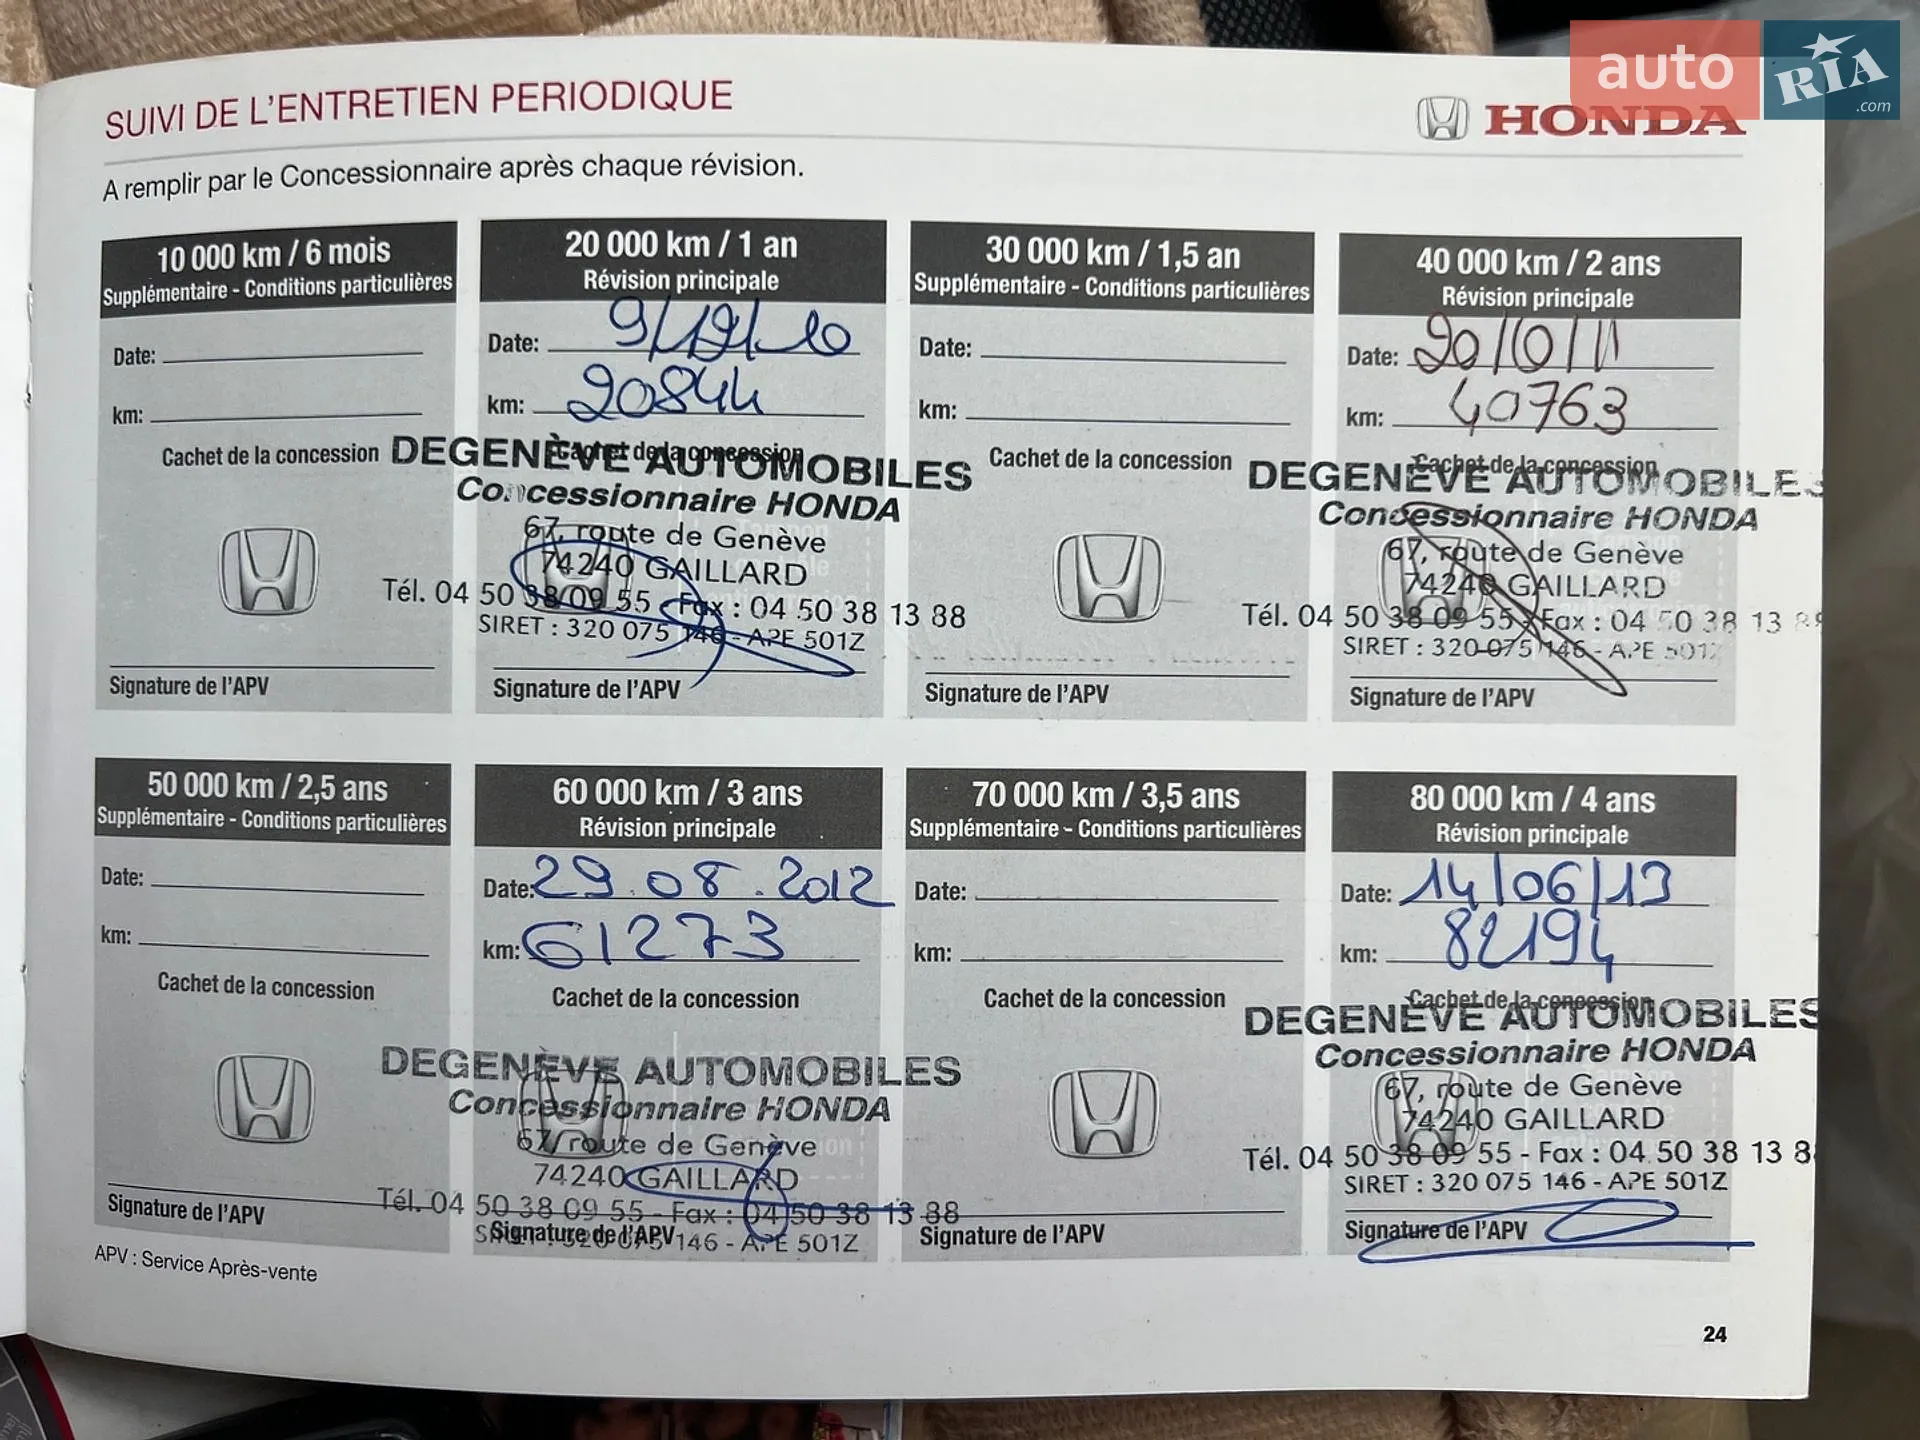 auto RIA .com
SUIVI DE L'ENTRETIEN PERIODIQUE
HONDA
A remplir par le Concessionnaire après chaque révision.
10 000 km / 6 mois
Supplémentaire - Conditions particulières
Date:
km:
Cachet de la concession
Signature de l'APV
20 000 km / 1 an
Révision principale
Date: 9/12/10
km: 20844
Cachet de la concession
DEGENÈVE AUTOMOBILES
Concessionnaire HONDA
67, route de Genève
74240 GAILLARD
Tél. 04 50 38 09 55 - Fax : 04 50 38 13 88
SIRET : 320 075 146 - APE 501Z
Signature de l'APV
30 000 km / 1,5 an
Supplémentaire - Conditions particulières
Date:
km:
Cachet de la concession
Signature de l'APV
40 000 km / 2 ans
Révision principale
Date: 20/10/11
km: 40763
Cachet de la concession
DEGENÈVE AUTOMOBILES
Concessionnaire HONDA
67, route de Genève
74240 GAILLARD
Tél. 04 50 38 09 55 - Fax : 04 50 38 13 88
SIRET : 320 075 146 - APE 501Z
Signature de l'APV
50 000 km / 2,5 ans
Supplémentaire - Conditions particulières
Date:
km:
Cachet de la concession
Signature de l'APV
60 000 km / 3 ans
Révision principale
Date: 29.08.2012
km: 61273
Cachet de la concession
DEGENÈVE AUTOMOBILES
Concessionnaire HONDA
67, route de Genève
74240 GAILLARD
Tél. 04 50 38 09 55 - Fax : 04 50 38 13 88
SIRET : 320 075 146 - APE 501Z
Signature de l'APV
70 000 km / 3,5 ans
Supplémentaire - Conditions particulières
Date:
km:
Cachet de la concession
Signature de l'APV
80 000 km / 4 ans
Révision principale
Date: 14/06/13
km: 82194
Cachet de la concession
DEGENÈVE AUTOMOBILES
Concessionnaire HONDA
67, route de Genève
74240 GAILLARD
Tél. 04 50 38 09 55 - Fax : 04 50 38 13 8
SIRET : 320 075 146 - APE 501Z
Signature de l'APV
APV : Service Après-vente
24